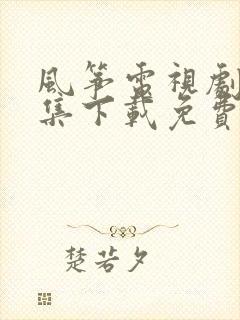 風箏電視劇
集下載免費
楚若夕